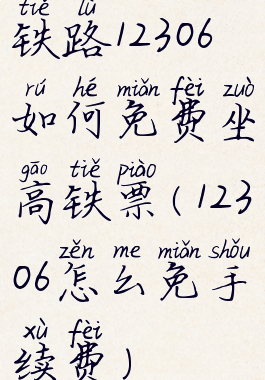 tiě lù
铁路12306
rú hé miǎn fèi zuò
如何免费坐
gāo tiě piào
高铁票(123
zěn me miǎn shǒu
06怎么免手
xù fèi
续费)